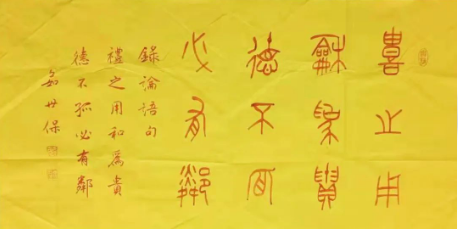 豊之用
龢爲貴
德不孤
必有鄰
錄論語句
禮之用和爲貴
德不孤必有鄰
世保